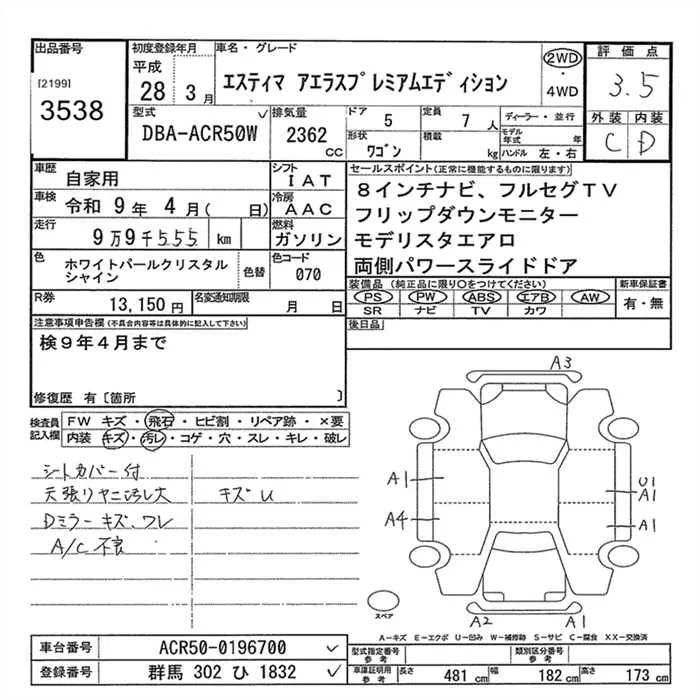 出品番号
[2199]
3538
初度登録年月
平成
28 3月
車名・グレード
エスティマ アエラスプレミアムエディション
2WD
・
4WD
評価点
3.5
外装 内装
C D
型式
DBA-ACR50W
排気量
2362
CC
ドア
5
定員
7人
形状
ワゴン
積載
kg
ディーラー・並行
モデル年式 年
ハンドル 左・右
車歴
自家用
シフト
IAT
車検
令和 9年 4月( 日)
冷房
AAC
走行
9万9千555 km
燃料
ガソリン
色
ホワイトパールクリスタル
シャイン
色替
色コード
070
セールスポイント(正常に機能するものに限ります)
8インチナビ、フルセグTV
フリップダウンモニター
モデリスタエアロ
両側パワースライドドア
R券
13,150円
名変通知期限
月 日
装備品(純正品に限り○をつけてください)
PS PW ABS エアB AW
SR ナビ TV カワ
新車保証書
有・無
後日品
注意事項申告欄(不具合内容等は具体的に記入して下さい)
検9年4月まで
修復歴 有〔箇所 〕
検査員
記入欄
FW キズ・飛石・ヒビ割・リペア跡・×要
内装 キズ・汚レ・コゲ・穴・スレ・キレ・破レ
シートカバー付
天張りヤニ汚レ大
キズU
Dミラーキズ、ワレ
A/C不良
A3
A1
U1
A1
A4
A1
A2
A1
スペア
A-キズ E-エクボ U-凹み W-補修跡 S-サビ C-腐食 XX-交換済
車台番号
ACR50-0196700
登録番号
群馬 302 ひ 1832
型式指定番号
参考
類別区分番号
参考
車庫証明用
参考
長さ
481 cm
幅
182 cm
高さ
173 cm